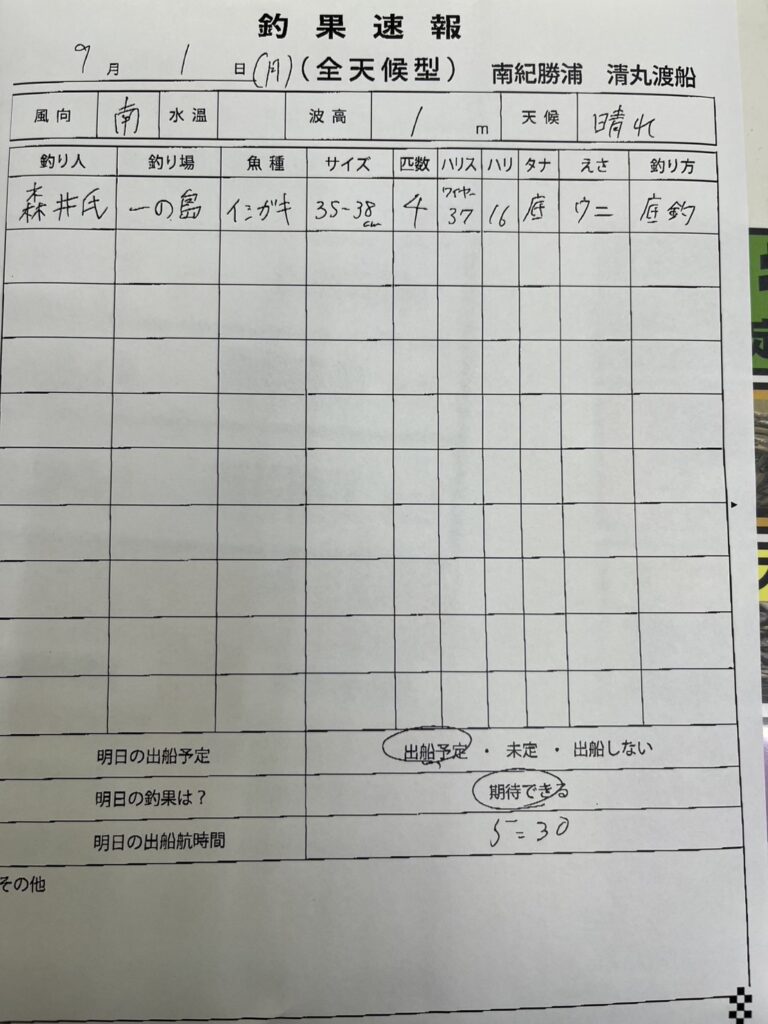 釣果速報
9月 1日(月)(全天候型) 南紀勝浦 清丸渡船
風向 南 水温 波高 1 m 天候 晴れ
釣り人 釣り場 魚種 サイズ 匹数 ハリス ハリ タナ えさ 釣り方
森井氏 一の島 イシガキ 35-38cm 4 ワイヤー37 16 底 ウニ 底釣
明日の出船予定 出船予定 ・ 未定 ・ 出船しない
明日の釣果は? 期待できる
明日の出船航時間 5=30
その他